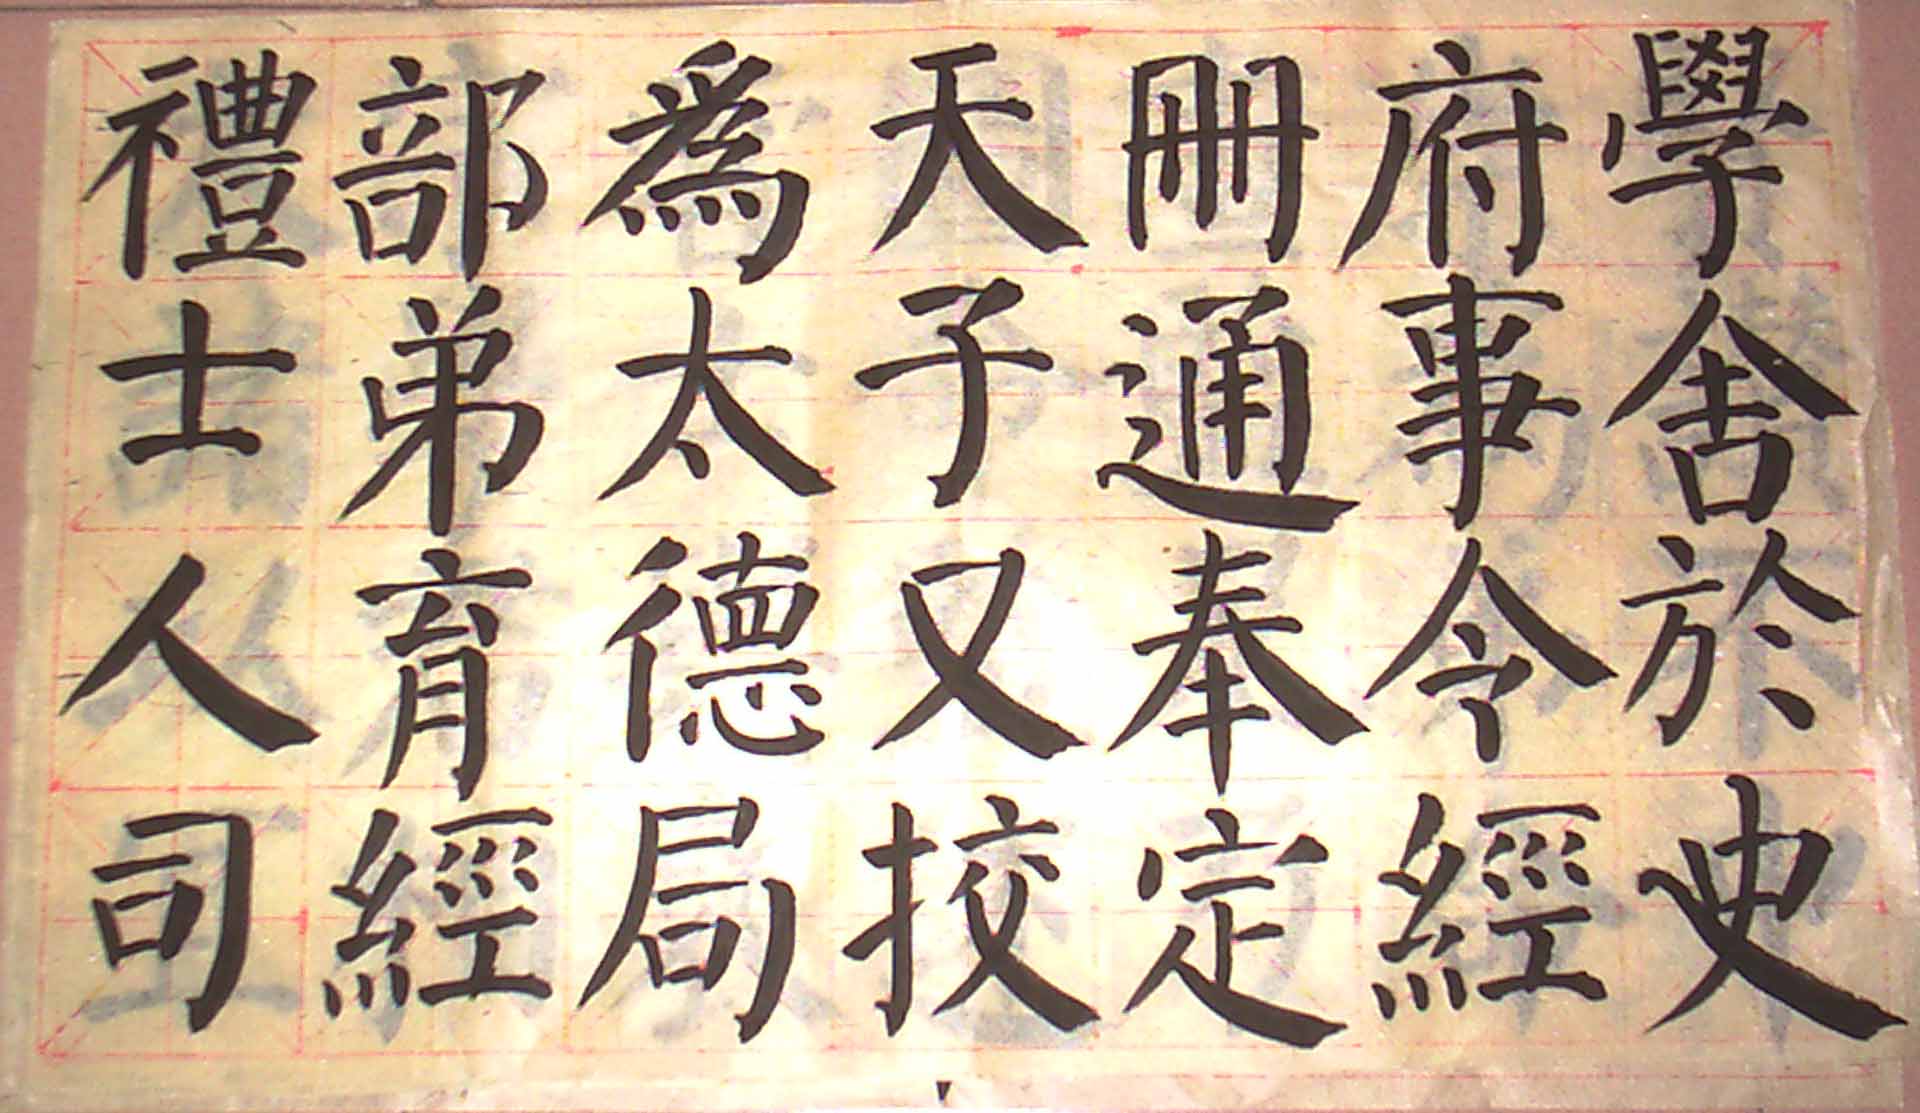 學舍於史
府事令經
冊通奉定
天子又挍
為太德局
部弟育經
禮士人司